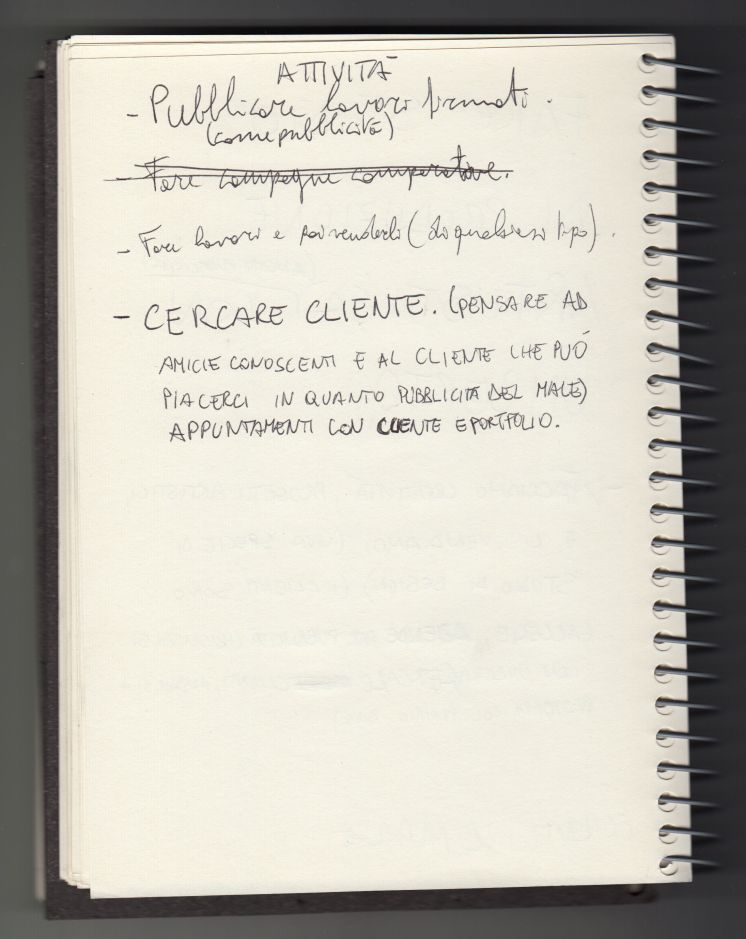 ATTIVITÀ
- Pubblicare lavori firmati.
(come pubblicità)
- Fare campagne comparative.
- Fare lavori e poi venderli (di qualsiasi tipo).
- CERCARE CLIENTE. (PENSARE AD
AMICI E CONOSCENTI E AL CLIENTE CHE PUÒ
PIACERCI IN QUANTO PUBBLICITÀ DEL MALE)
APPUNTAMENTI CON CLIENTE E PORTFOLIO.